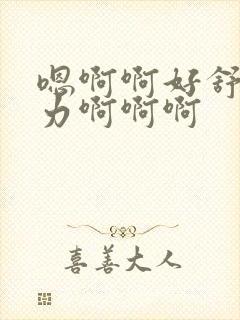 嗯啊啊好舒
力啊啊啊
喜善大人